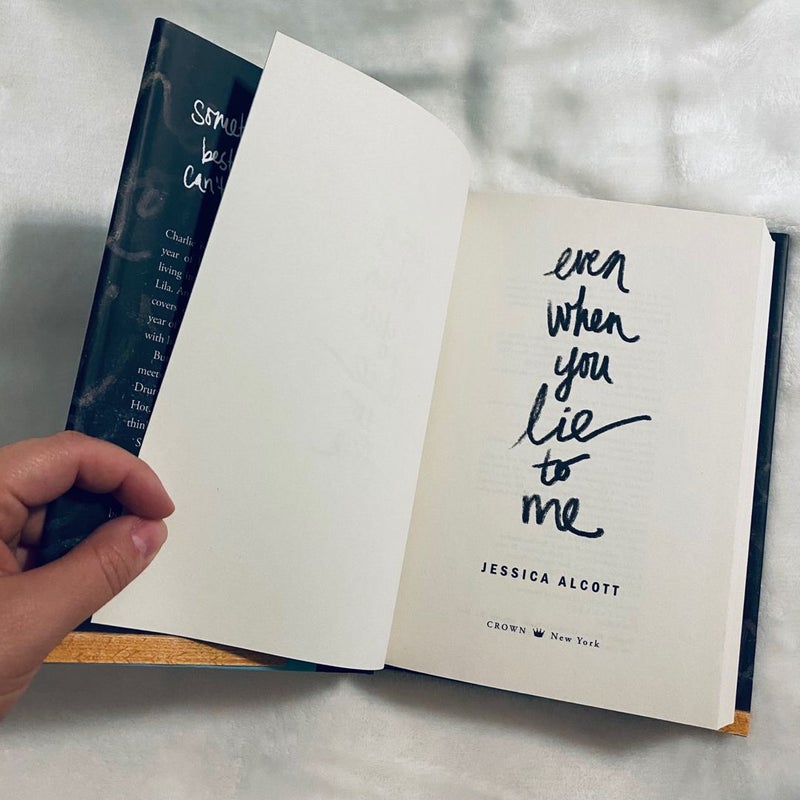 best
can't
Charlie
year of
living in
Lila.
covers
year of
with
Bu
meet
Hot.
even
when
you
lie
to
me
JESSICA ALCOTT
CROWN New York